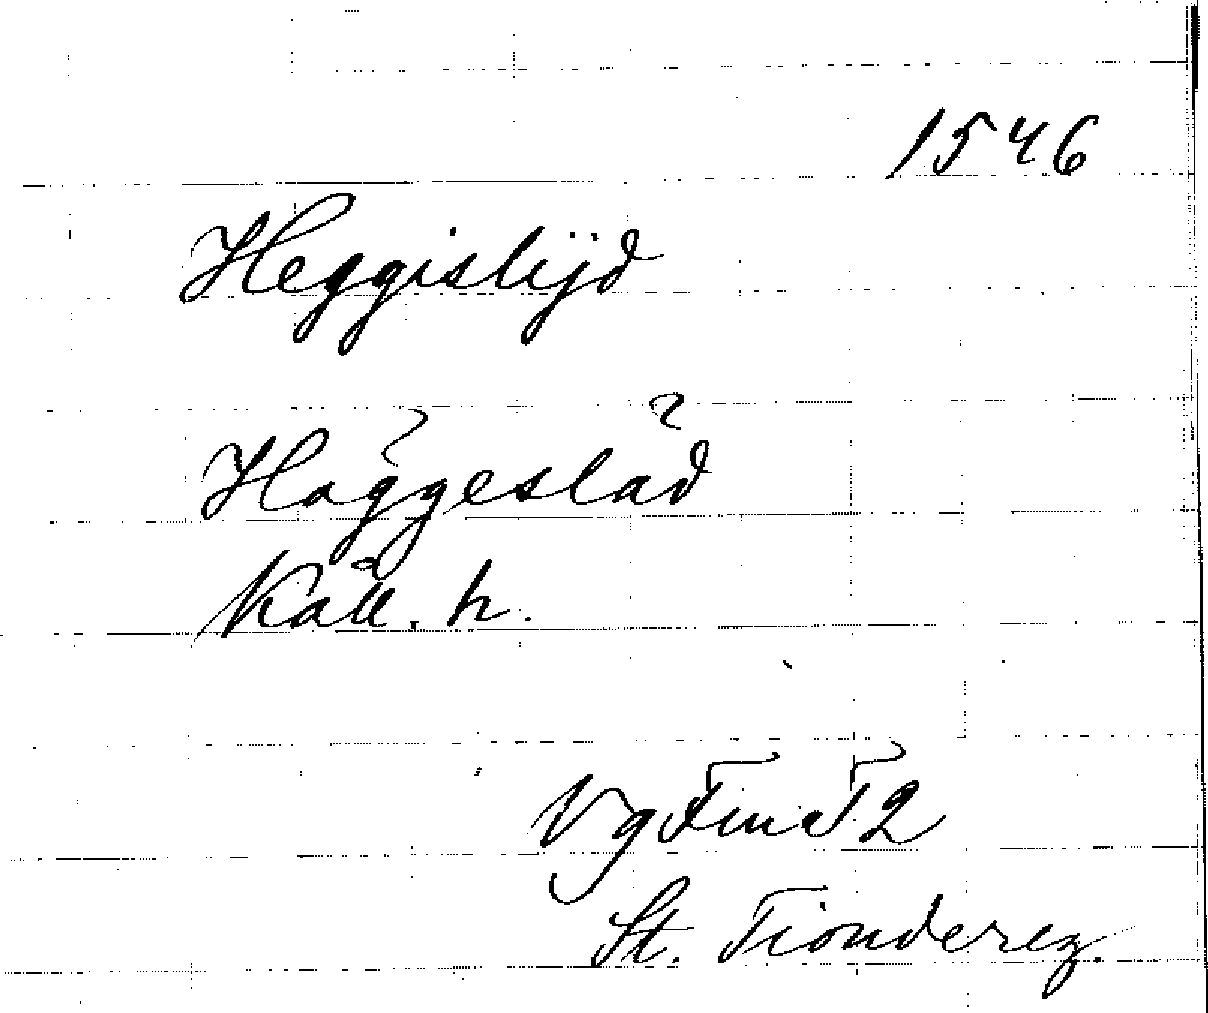 1546
Heggislijd
Häggesläd
Kåll. h.
Vg Fin T 2
St. Tiondereg.